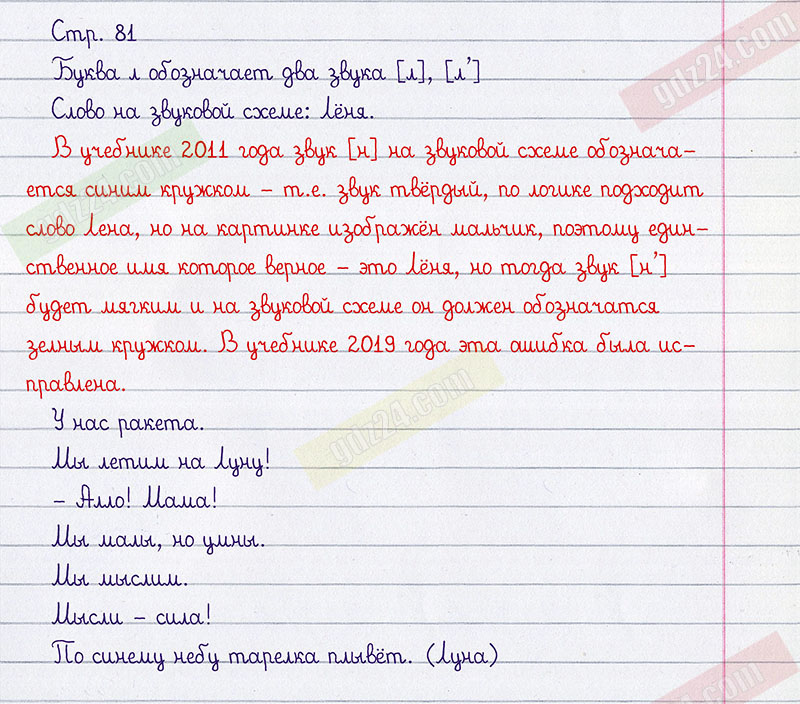 Стр. 81
Буква л обозначает два звука [л], [л’]
Слово на звуковой схеме: Лёня.
В учебнике 2011 года звук [н] на звуковой схеме обознача-
ется синим кружком – т.е. звук твёрдый, по логике подходит
слово Лена, но на картинке изображён мальчик, поэтому един-
ственное имя которое верное – это Лёня, но тогда звук [н’]
будет мягким и на звуковой схеме он должен обозначатся
зелным кружком. В учебнике 2019 года эта ашибка была ис-
правлена.
У нас ракета.
Мы летим на Луну!
– Алло! Мама!
Мы малы, но умны.
Мы мыслим.
Мысли – сила!
По синему небу тарелка плывёт. (Луна)
gdz24.com
gdz24.com
gdz24.com
gdz24.com